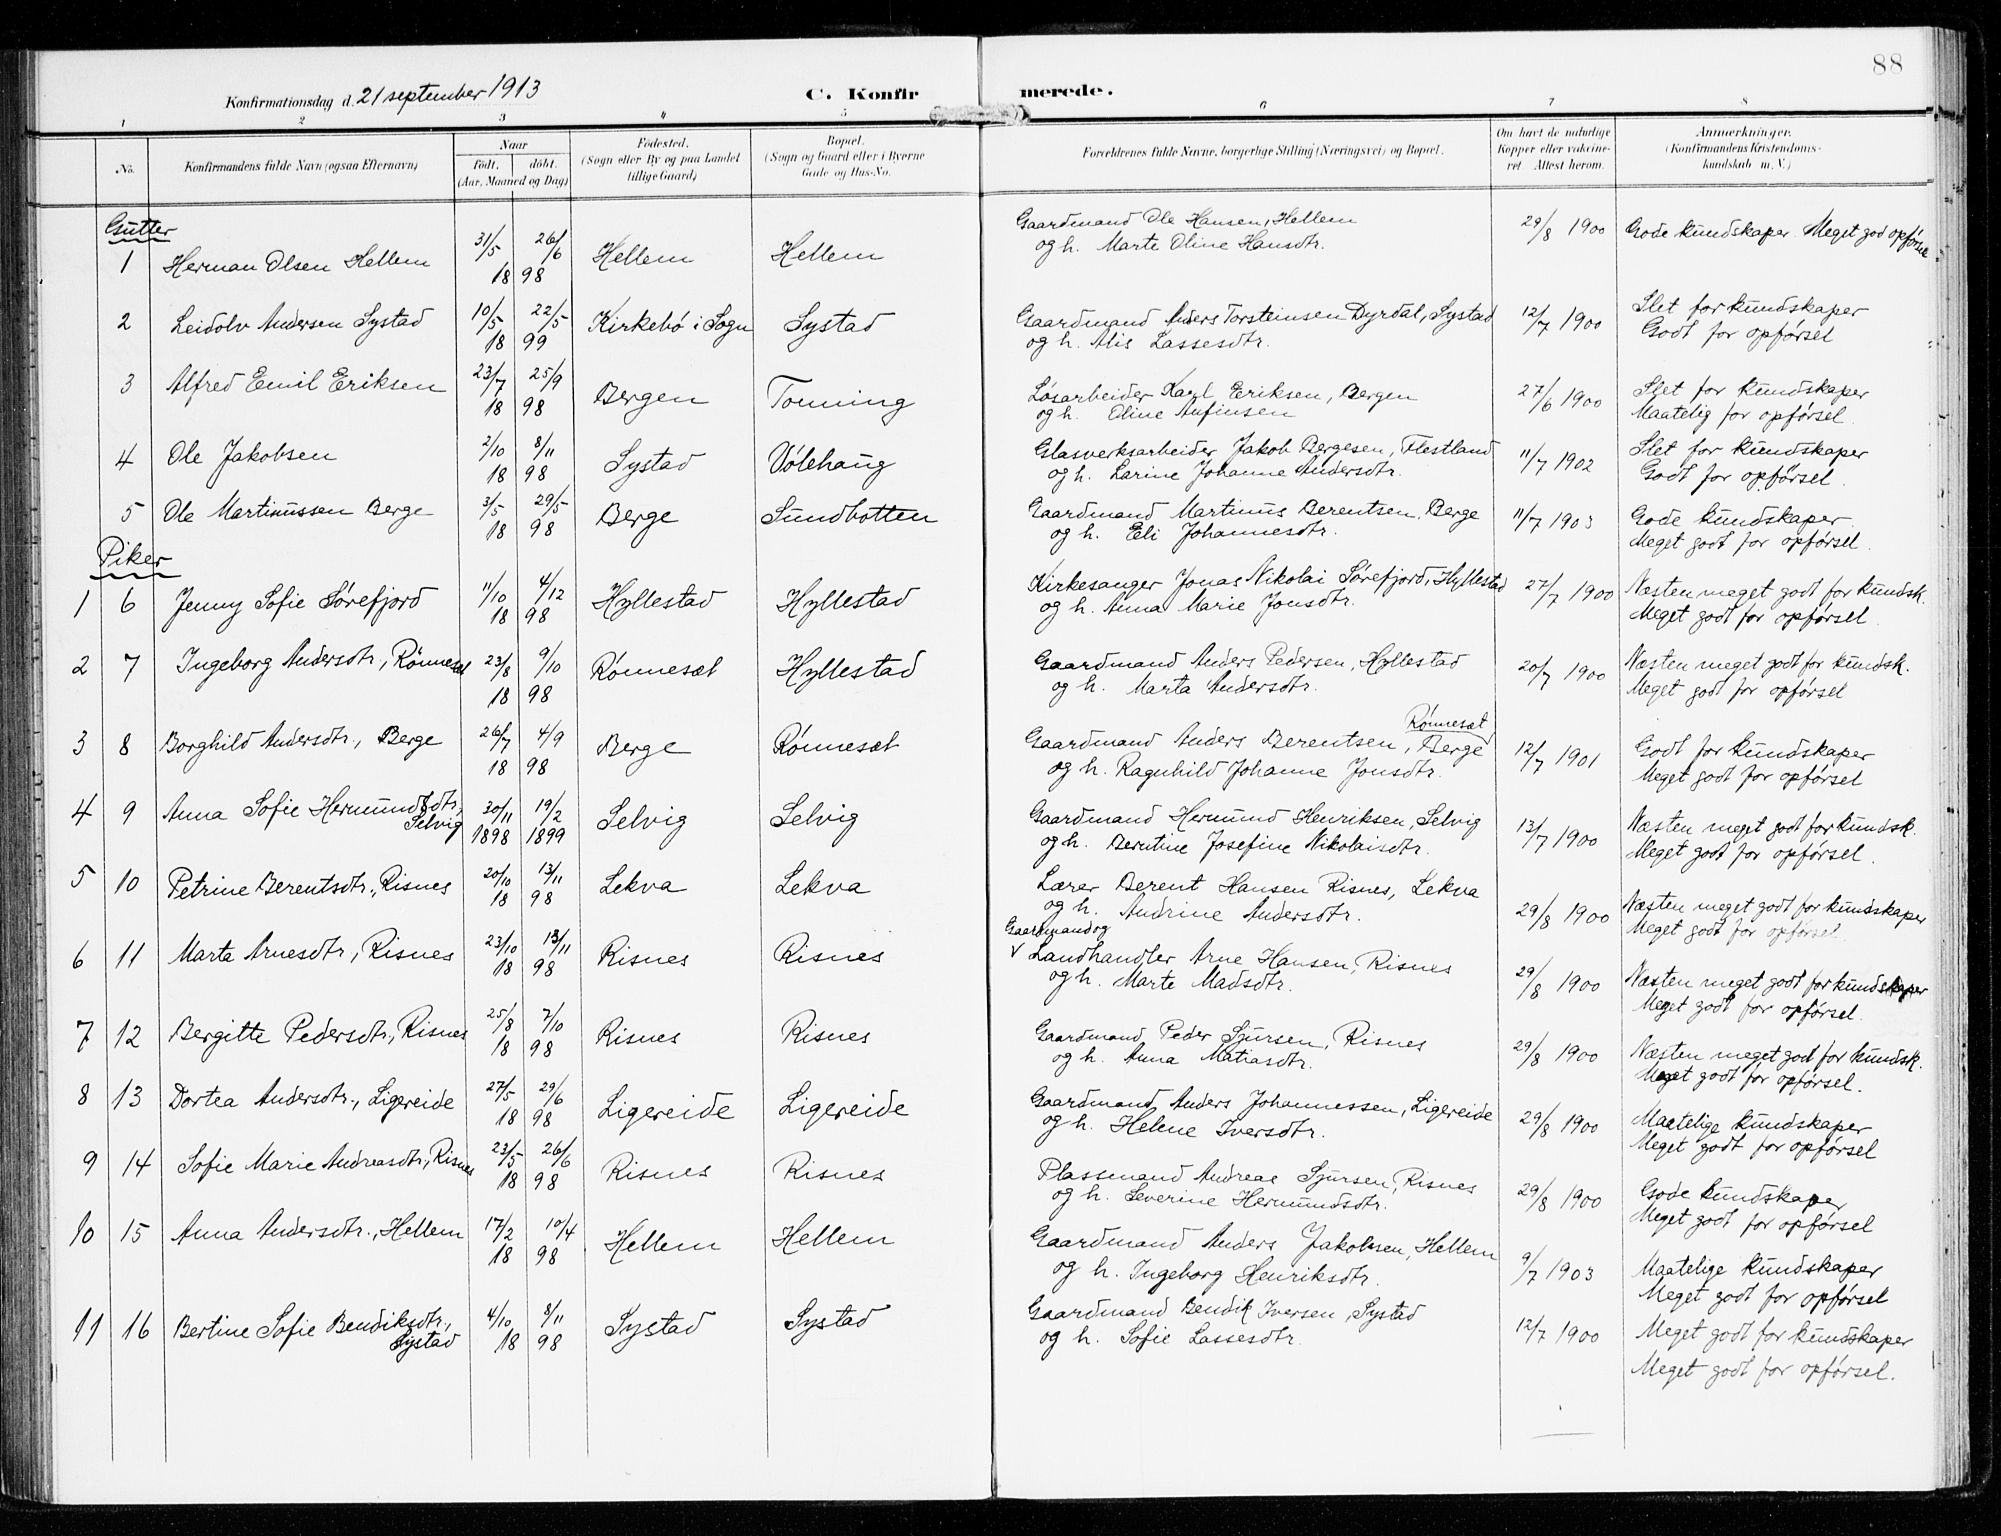 88
Konfirmationsdag d. 21 september 1913 C. Konfirmerede.
1 2 3 4 5 6 7 8
No. Konfirmandens fulde Navn (ogsaa Efternavn) Naar Födt. döbt. (Aar, Maaned og Dag) Födested. (Sogn eller By og paa Landet tillige Gaard) Bopæl. (Sogn og Gaard eller i Byerne Gade og Hus-No. Forældrenes fulde Navne, borgerlige Stilling (Næringsvei) og Bopæl. Om havt de naturlige Kopper eller vaccineret. Attest herom. Anmerkninger. (Konfirmandens Kristendomskundskab m. V.)
Gutter
1 Herman Olsen Hellem 31/5 18 98 26/6 Hellem Hellem Gaardmand Ole Hansen, Hellem
og h. Marte Oline Hansdtr. 29/8 1900 Gode kundskaper. Meget god opførsel
2 Leidolv Andersen Systad 10/5 22/5 18 99 Kirkebø i Sogn Systad Gaardmand Anders Torsteinsen Dyrdal, Systad
og h. Alis Lassesdtr. 12/7 1900 Slet for kundskaper
Godt for opførsel
3 Alfred Emil Eriksen 23/7 25/9 18 98 Bergen Tonning Løsarbeider Karl Eriksen, Bergen
og h. Oline Anfinsen 27/6 1900 Slet for kundskaper
Maatelig for opførsel.
4 Ole Jakobsen 2/10 8/11 18 98 Systad Vølehaug Glasverksarbeider Jakob Bergesen, Flestland
og h. Larine Johanne Andersdtr. 11/7 1902 Slet for kundskaper
Godt for opførsel.
5 Ole Martinussen Berge 3/5 29/5 18 98 Berge Sundbotten Gaardmand Martinus Berentsen, Berge
og h. Eli Johannesdtr. 11/7 1903 Gode kundskaper
Meget godt for opførsel.
Piker
1 6 Jenny Sofie Sørefjord 11/10 4/12 18 98 Hyllestad Hyllestad Kirkesanger Jonas Nikolai Sørefjord, Hyllestad
og h. Anna Marie Jonsdtr. 27/7 1900 Næsten meget godt for kundsk.
Meget godt for opførsel.
2 7 Ingeborg Andersdtr., Rønneset 23/8 9/10 18 98 Rønneset Hyllestad Gaardmand Anders Pedersen, Hyllestad
og h. Marta Andersdtr. 20/7 1900 Næsten meget godt for kundsk.
Meget godt for opførsel
3 8 Borghild Andersdtr., Berge 26/7 4/9 18 98 Berge Rønneset Gaardmand Anders Berentsen, Berge Rønneset
og h. Ragnhild Johanne Jonsdtr. 12/7 1901 Godt for kundskaper
Meget godt for opførsel
4 9 Anna Sofie Hermundsdtr., Selvig 30/11 1898 19/2 1899 Selvig Selvig Gaardmand Hermund Henriksen, Selvig
og h. Berntine Josefine Nikolaisdtr. 13/7 1900 Næsten meget godt for kundsk.
Meget godt for opførsel.
5 10 Petrine Berentsdtr., Risnes 20/10 13/11 18 98 Lekva Lekva Lærer Berent Hansen Risnes, Lekva
og h. Andrine Andersdtr. 29/8 1900 Næsten meget godt for kundskaper
Meget godt for opførsel.
6 11 Marta Arnesdtr., Risnes 23/10 13/11 18 98 Risnes Risnes Gaardmand og
V Landhandler Arne Hansen, Risnes
og h. Marte Madsdtr. 29/8 1900 Næsten meget godt for kundskaper
Meget godt for opførsel.
7 12 Bergitte Pedersdtr., Risnes 25/8 7/10 18 98 Risnes Risnes Gaardmand Peder Sjursen, Risnes
og h. Anna Matiasdtr. 29/8 1900 Næsten meget god for kundsk.
Meget godt for opførsel.
8 13 Dortea Andersdtr., Ligereide 27/5 29/6 18 98 Ligereide Ligereide Gaardmand Anders Johannessen, Ligereide
og h. Helene Iversdtr. 29/8 1900 Maatelige kundskaper
Meget godt for opførsel
9 14 Sofie Marie Andreasdtr., Risnes 23/5 26/6 18 98 Risnes Risnes Plassmand Andreas Sjursen, Risnes
og h. Severine Hermundsdtr. 29/8 1900 Gode kundskaper
Meget godt for opførsel
10 15 Anna Andersdtr., Hellem 17/2 10/4 18 98 Hellem Hellem Gaardmand Anders Jakobsen, Hellem
og h. Ingeborg Henriksdtr. 9/7 1903 Maatelige kundskaper
Meget godt for opførsel
11 16 Bertine Sofie Bendiksdtr., Systad 4/10 8/11 18 98 Systad Systad Gaardmand Bendik Iversen, Systad
og h. Sofie Lassesdtr. 12/7 1900 Meget godt for kundskaper
Meget godt for opførsel.